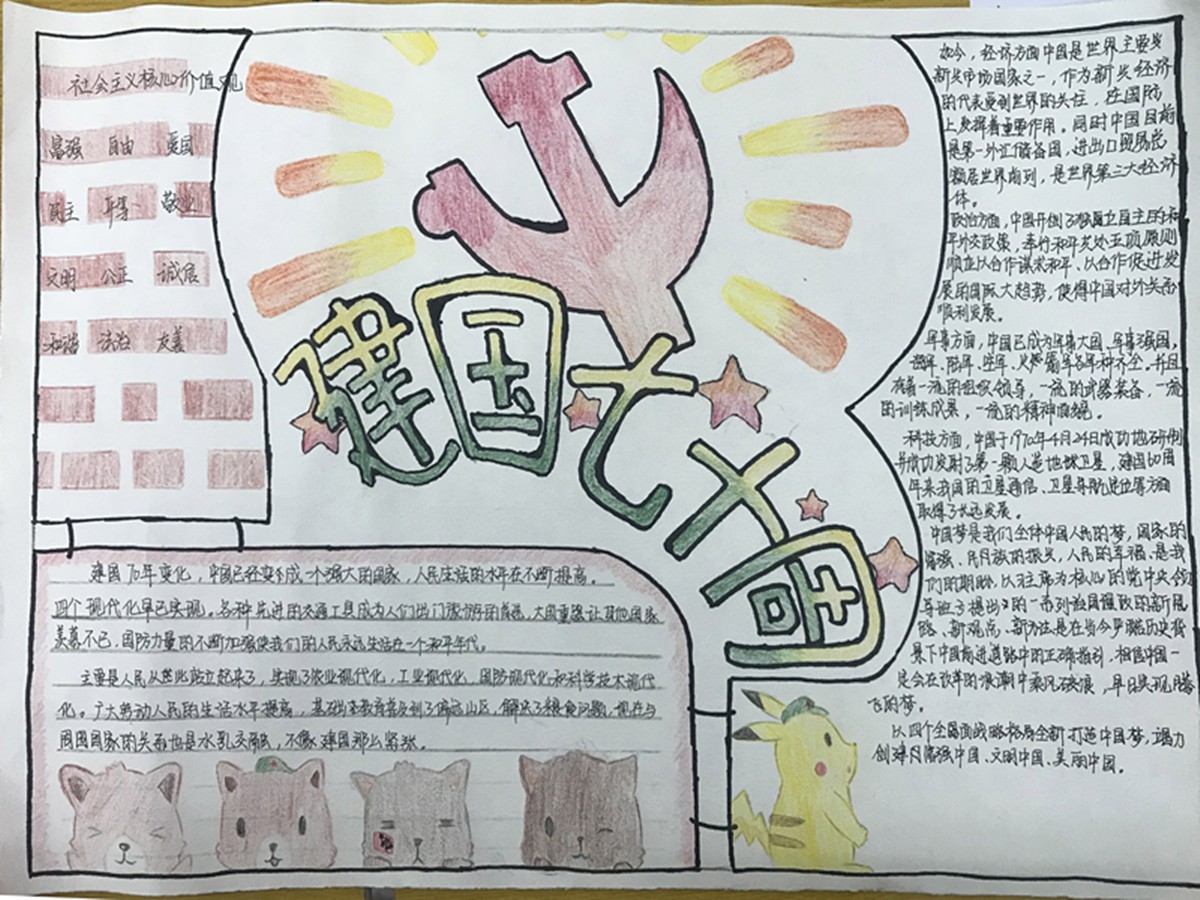 社会主义核心价值观
富强 自由 爱国
民主 平等 敬业
文明 公正 诚信
和谐 法治 友善
建国七十周
建国70年变化,中国已经变成一个强大的国家,人民生活的水平在不断提高。
四个现代化早已实现。各种先进的交通工具成为人们出门旅游的首选,大国重器让其他国家
羡慕不已,国防力量的不断加强使我们的人民永远生活在一个和平年代。
主要是人民从此站立起来了,实现了农业现代化,工业现代化,国防现代化和科学技术现代
化。广大劳动人民的生活水平提高,基础本教育普及到了偏远山区,解决了粮食问题,现在与
周围国家的关系也是水乳交融,不像建国那么紧张。
如今,经济方面中国是世界主要发
新兴市场国家之一,作为新兴经济
的代表受到世界的关注,在国际
上发挥着重要作用。同时中国目前
是第一外汇储备国,进出口贸易总
额居世界前列,是世界第三大经济
体。
政治方面,中国开创了独立自主的和
平外交政策,奉行和平共处五项原则
顺应以合作谋求和平、以合作促进发
展的国际大趋势,使得中国对外关系
顺利发展。
军事方面,中国已成为军事大国,军事强国,
海军、陆军、空军、火箭军各军种齐全。并且
有着一流的组织领导,一流的武器装备,一流
的训练成果,一流的精神面貌。
科技方面,中国于1970年4月24日成功地研制
并成功发射了第一颗人造地球卫星,建国60周
年来我国的卫星通信、卫星导航定位等方面
取得了长远发展。
中国梦是我们全体中国人民的梦,国家的
富强、民族的振兴,人民的幸福、是我
们的期盼,以习主席为核心的党中央领
导班子提出的一系列治国理政的新思
路、新观点、新方法是在当今严酷历史背
景下中国前进道路中的正确指引,相信中国一
定会在改革的浪潮中乘风破浪,早日实现腾
飞的梦。
从四个全面战略格局全新打造中国梦,竭力
创建富强中国、文明中国、美丽中国。